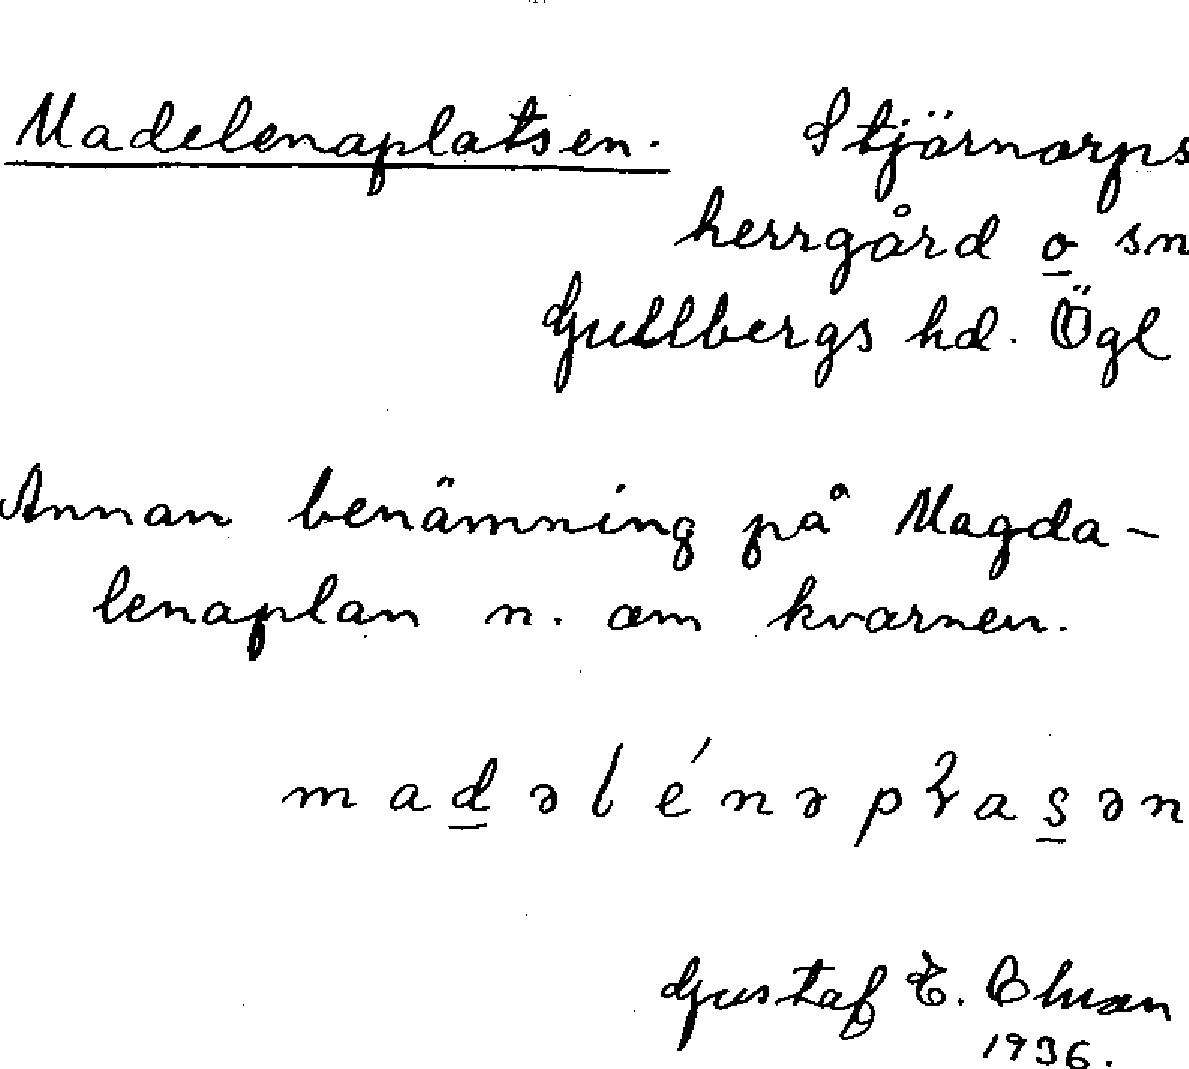 Madelenaplatsen. Stjärnorps
herrgård o sn
Gullbergs hd. Ögl
Annan benämning på Magda-
lenaplan n. om kvarnen.
madəlénəpɫasən
Gustaf E.
1936.